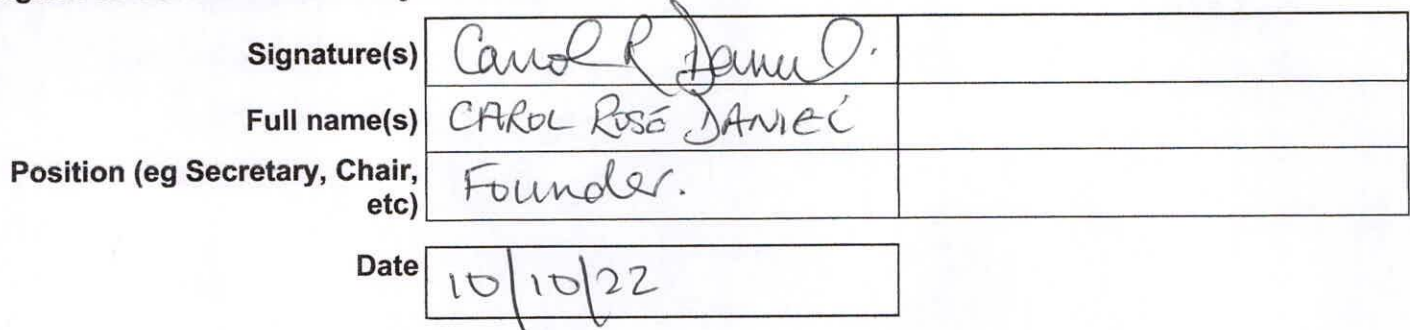 Signature(s) Carol R Daniel.
Full name(s) CAROL ROSE DANIEL
Position (eg Secretary, Chair, Founder.
etc)
Date 10/10/22